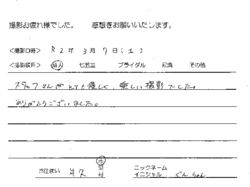 撮影お疲れ様でした。 感想をお願いいたします。
<撮影日時> R2年 3月 7日(土)
<撮影種別> 成人 七五三 ブライダル 記念 その他
スタッフさんが とても優しく、楽しい撮影でした。
ありがとうございました。
お住まい 市 ニックネーム
イニシャル くんちゃん